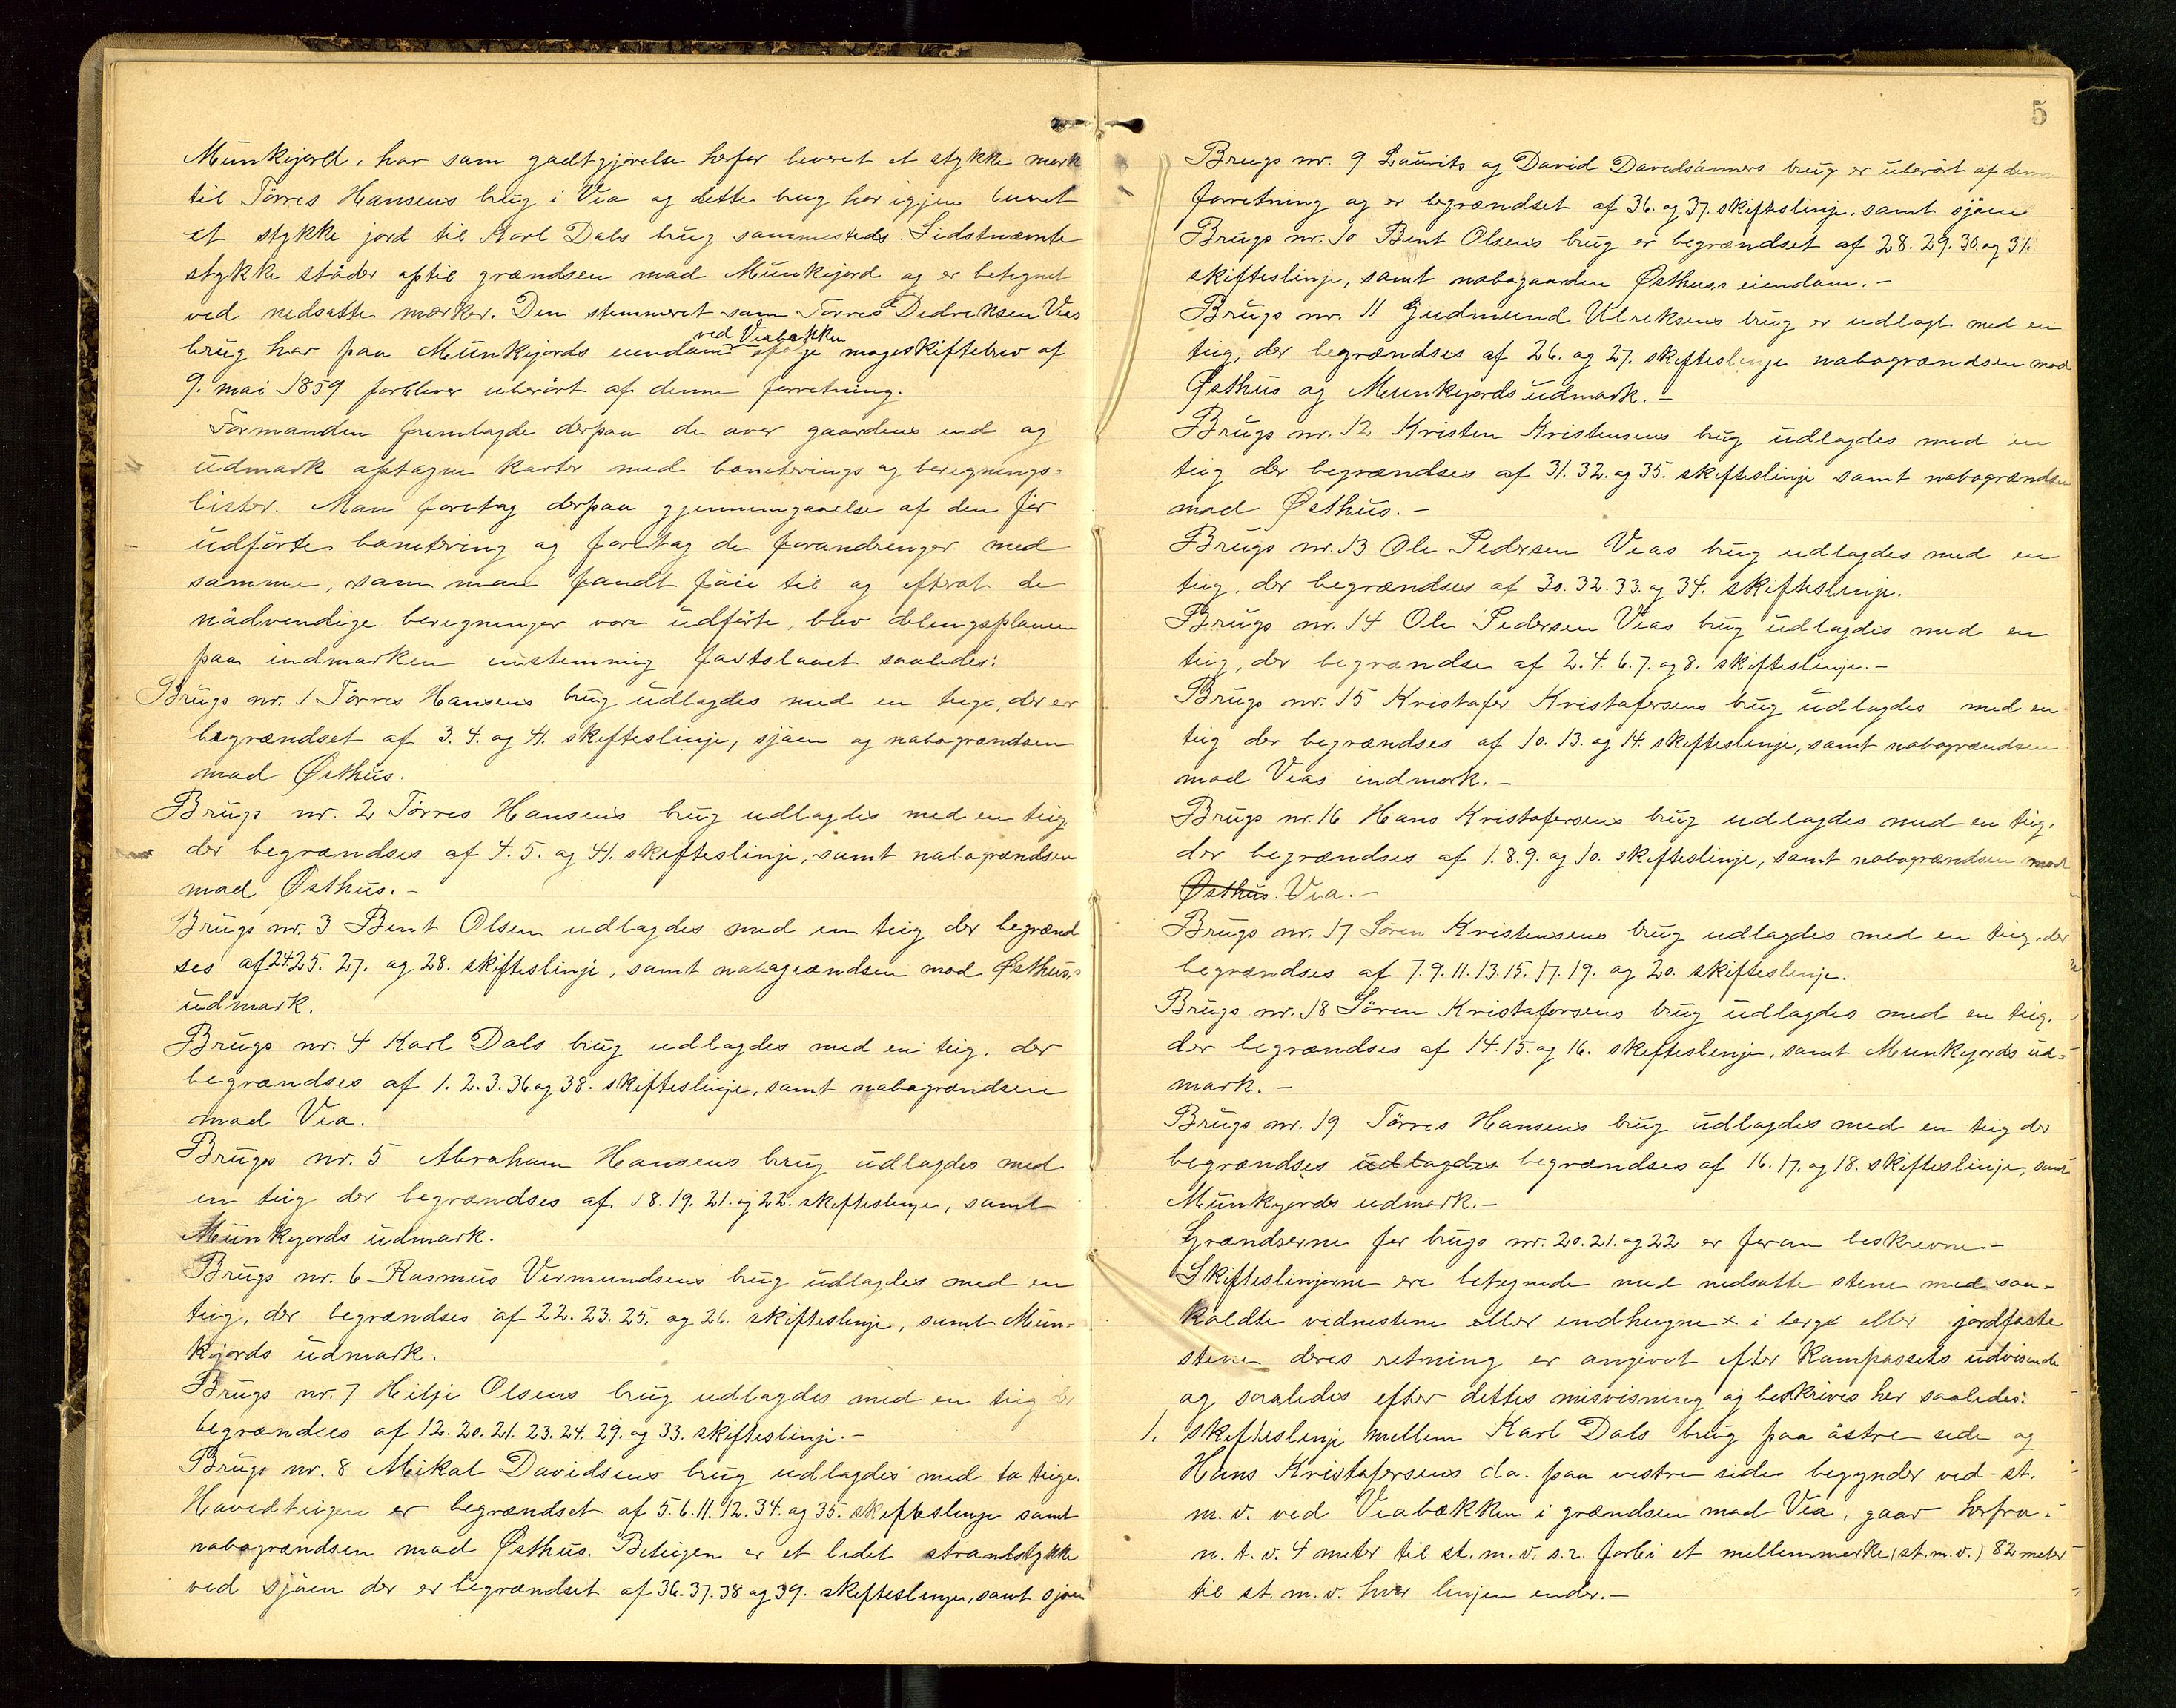 Munkejord, har som godtgjörelse herfor leveret et stykke mark
til Törres Hansens brug i Vea og dette brug har igjen leveret
et stykke jord til Karl Dals brug sammesteds. Sidstnævnte
stykke stöder optil grændsen mod Munkejord og er betegnet
ved nedsatte mærker. Den stemmeret som Torres Dedreksen Veas
ved Veabækken
brug har paa Munkejords eiendom ifölge mageskiftebrev af
9. mai 1859 forbliver uberört af denne forretning.
Formanden fremlagde derpaa de over gaardens ind og
udmark optagne karter med boneterings og beregnings-
lister. Man foretog derpaa gjennemgaaelse af den för
udförte bonetering og foretog de forandringer med
samme, som man fandt föie til og efterat de
nödvendige beregninger vare udförte, blev delingsplanen
paa indmarken enstemmig fastslaaet saaledes:
Brugs nr. 1 Törres Hansens brug udlagdes med en teig, der er
begrændset af 3. 4. og 41. skifteslinje, sjöen og nabogrændsen
mod Østhus.
Brugs nr. 2 Törres Hansens brug udlagdes med en teig
der begrændses af 4. 5. og 41. skifteslinje, samt nabogrændsen
mod Østhus. -
Brugs nr. 3 Bent Olsen udlagdes med en teig der begrænd
ses af 24 25. 27. og 28. skifteslinje, samt nabogrændsen mod Østhus
udmark.
Brugs nr. 4 Karl Dals brug udlagdes med en teig. der
begrændses af 1. 2. 3. 36 og 38. skifteslinje, samt nabogrændsen
mod Vea.
Brugs nr. 5 Abraham Hansens brug udlagdes med
en teig der begrændses af 18. 19. 21. og 22. skifteslinje, samt
Munkejords udmark.
Brugs nr. 6 Rasmus Vermundsens brug udlagdes med en
teig, der begrændses af 22. 23. 25. og 26. skifteslinje, samt Mun-
kejords udmark.
Brugs nr. 7 Hilje Olsens brug udlagdes med en teig der
begrændses af 12. 20. 21. 23. 24. 29. og 33. skifteslinje. -
Brugs nr. 8 Mikal Davidsens brug udlagdes med to teige.
Hovedteigen er begrændset af 5. 6. 11. 12. 34. og 35. skifteslinje samt
nabogrændsen mod Østhus. Beteigen er et lidet strandstykke
ved sjöen der er begrændset af 36. 37. 38 og 39. skifteslinje, samt sjöen
5
Brugs nr. 9 Laurits og David Davidsönners brug er uberört af denne
forretning og er begrændset af 36. og 37. skifteslinje, samt sjöen
Brugs nr. 10 Bent Olsens brug er begrændset af 28. 29. 30. og 31.
skifteslinje, samt nabogaarden Østhuss eiendom. -
Brugs nr. 11 Gudmund Ulreksens brug er udlagt med en
teig, der begrændses af 26. og 27. skifteslinje nabogrændsen mod
Østhus og Munkejords udmark. -
Brugs nr. 12 Kristen Kristensens brug udlagdes med en
teig der begrændses af 31. 32. og 35. skifteslinje samt nabogrændsen
mod Østhus. -
Brugs nr. 13 Ole Pedersen Veas brug udlagdes med en
teig, der begrændses af 30. 32. 33. og 34. skifteslinje.
Brugs nr. 14 Ole Pedersen Veas brug udlagdes med en
teig, der begrændse af 2. 4. 6. 7. og 8. skifteslinje. -
Brugs nr. 15 Kristofer Kristofersens brug udlagdes med en
teig der begrændses af 10. 13. og 14. skifteslinje, samt nabogrændsen
mod Veas indmark. -
Brugs nr. 16 Hans Kristofersens brug udlagdes med en teig.
der begrændses af 1. 8. 9. og 10. skifteslinje, samt nabogrændsen mod
Østhus. Vea. -
Brugs nr. 17 Sören Kristensens brug udlagdes med en teig, der
begrændses af 7. 9. 11. 13. 15. 17. 19. og 20. skifteslinje.
Brugs nr. 18 Sören Kristofersens brug udlagdes med en teig.
der begrændses af 14. 15. og 16. skifteslinje, samt Munkejords ud-
mark. -
Brugs nr. 19 Törres Hansens brug udlagdes med en teig der
begrændses udlagdes begrændses af 16. 17. og 18. skifteslinje, samt
Munkejords udmark. -
Grændserne for brugs nr. 20. 21. og 22 er foran beskrevne -
Skifteslinjerne ere betegnede med nedsatte stene med saa-
kaldte vidnestene eller indhugne x i berget eller jordfaste
stene deres retning er angivet efter kompassets udvisende
og saaledes efter dettes misvisning og beskrives her saaledes:
1. skifteslinje mellem Karl Dals brug paa östre side og
Hans Kristofersens do. paa vestre side begynder ved st.
m. v. ved Veabækken i grændsen mod Vea, gaar herfra i
n. t. v. 4 meter til st. m. v. s. r. forbi et mellemmerke (st. m. v.) 82 meter
til st. m. v. hvor linjen ender. -